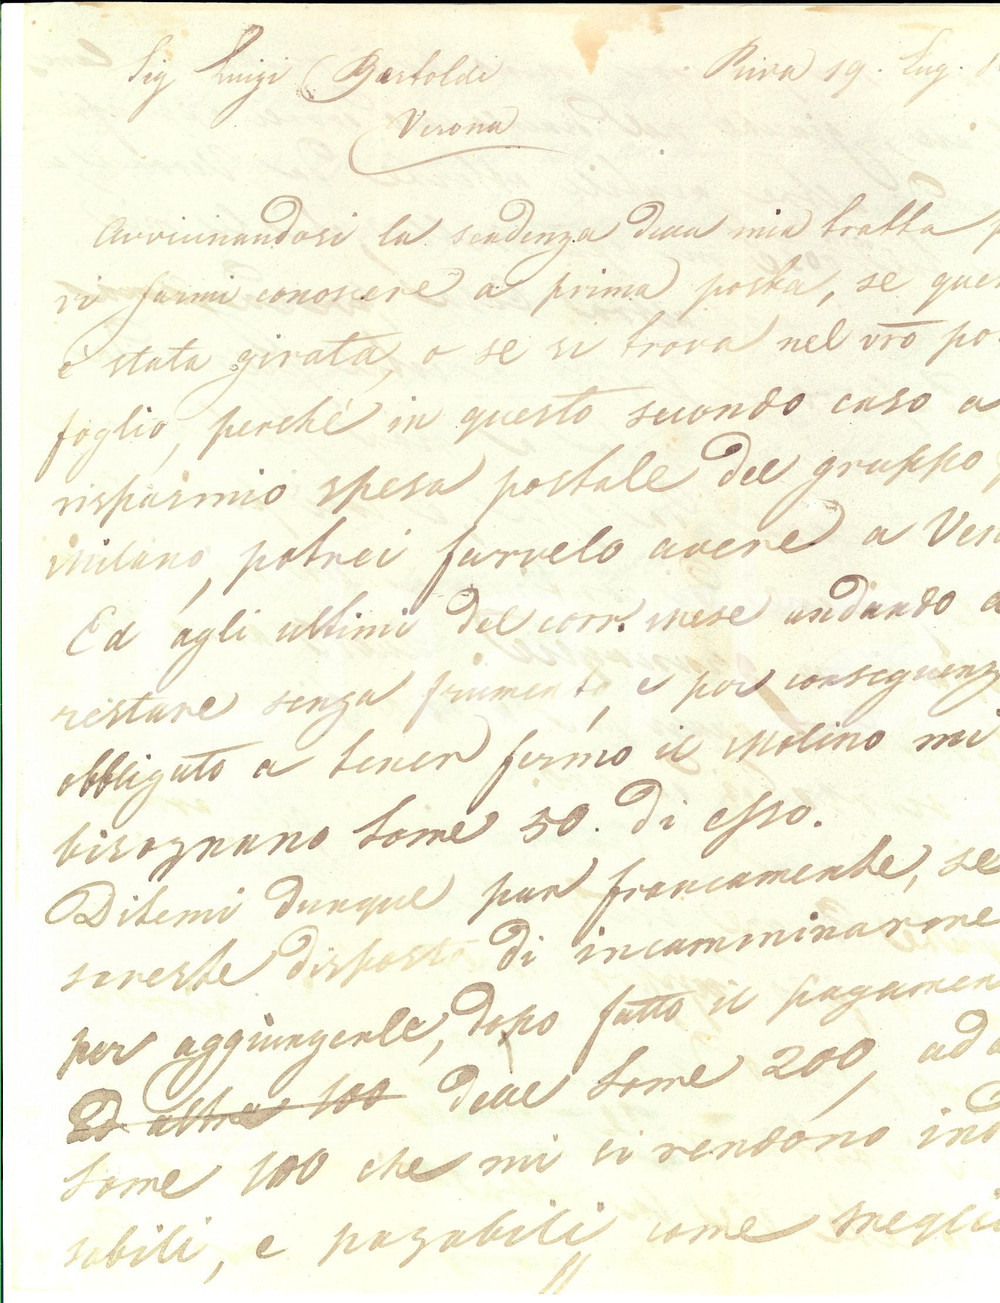 Sig Luigi Bertoldi Riva 19. Lug.
Verona
Avvicinandosi la scadenza della mia tratta
vi farmi conoscere a prima posta, se
è stata girata, o se si trova nel vro
foglio, perché in questo secondo caso a
risparmio spesa postale del gruppo
Milano, potrei farvelo avere a
Ed agli ultimi del corr. mese andando a
restare senza frumento, e per
obbligato a tener fermo il Molino mi
bisognano some 50. di esso.
Ditemi dunque pur francamente, se
sareste disposto di incamminarmene
per aggiungerle, dopo fatto il
Ed altre 100 delle some 200, ad
some 100 che mi si rendono
sabili, e pagabili come meglio